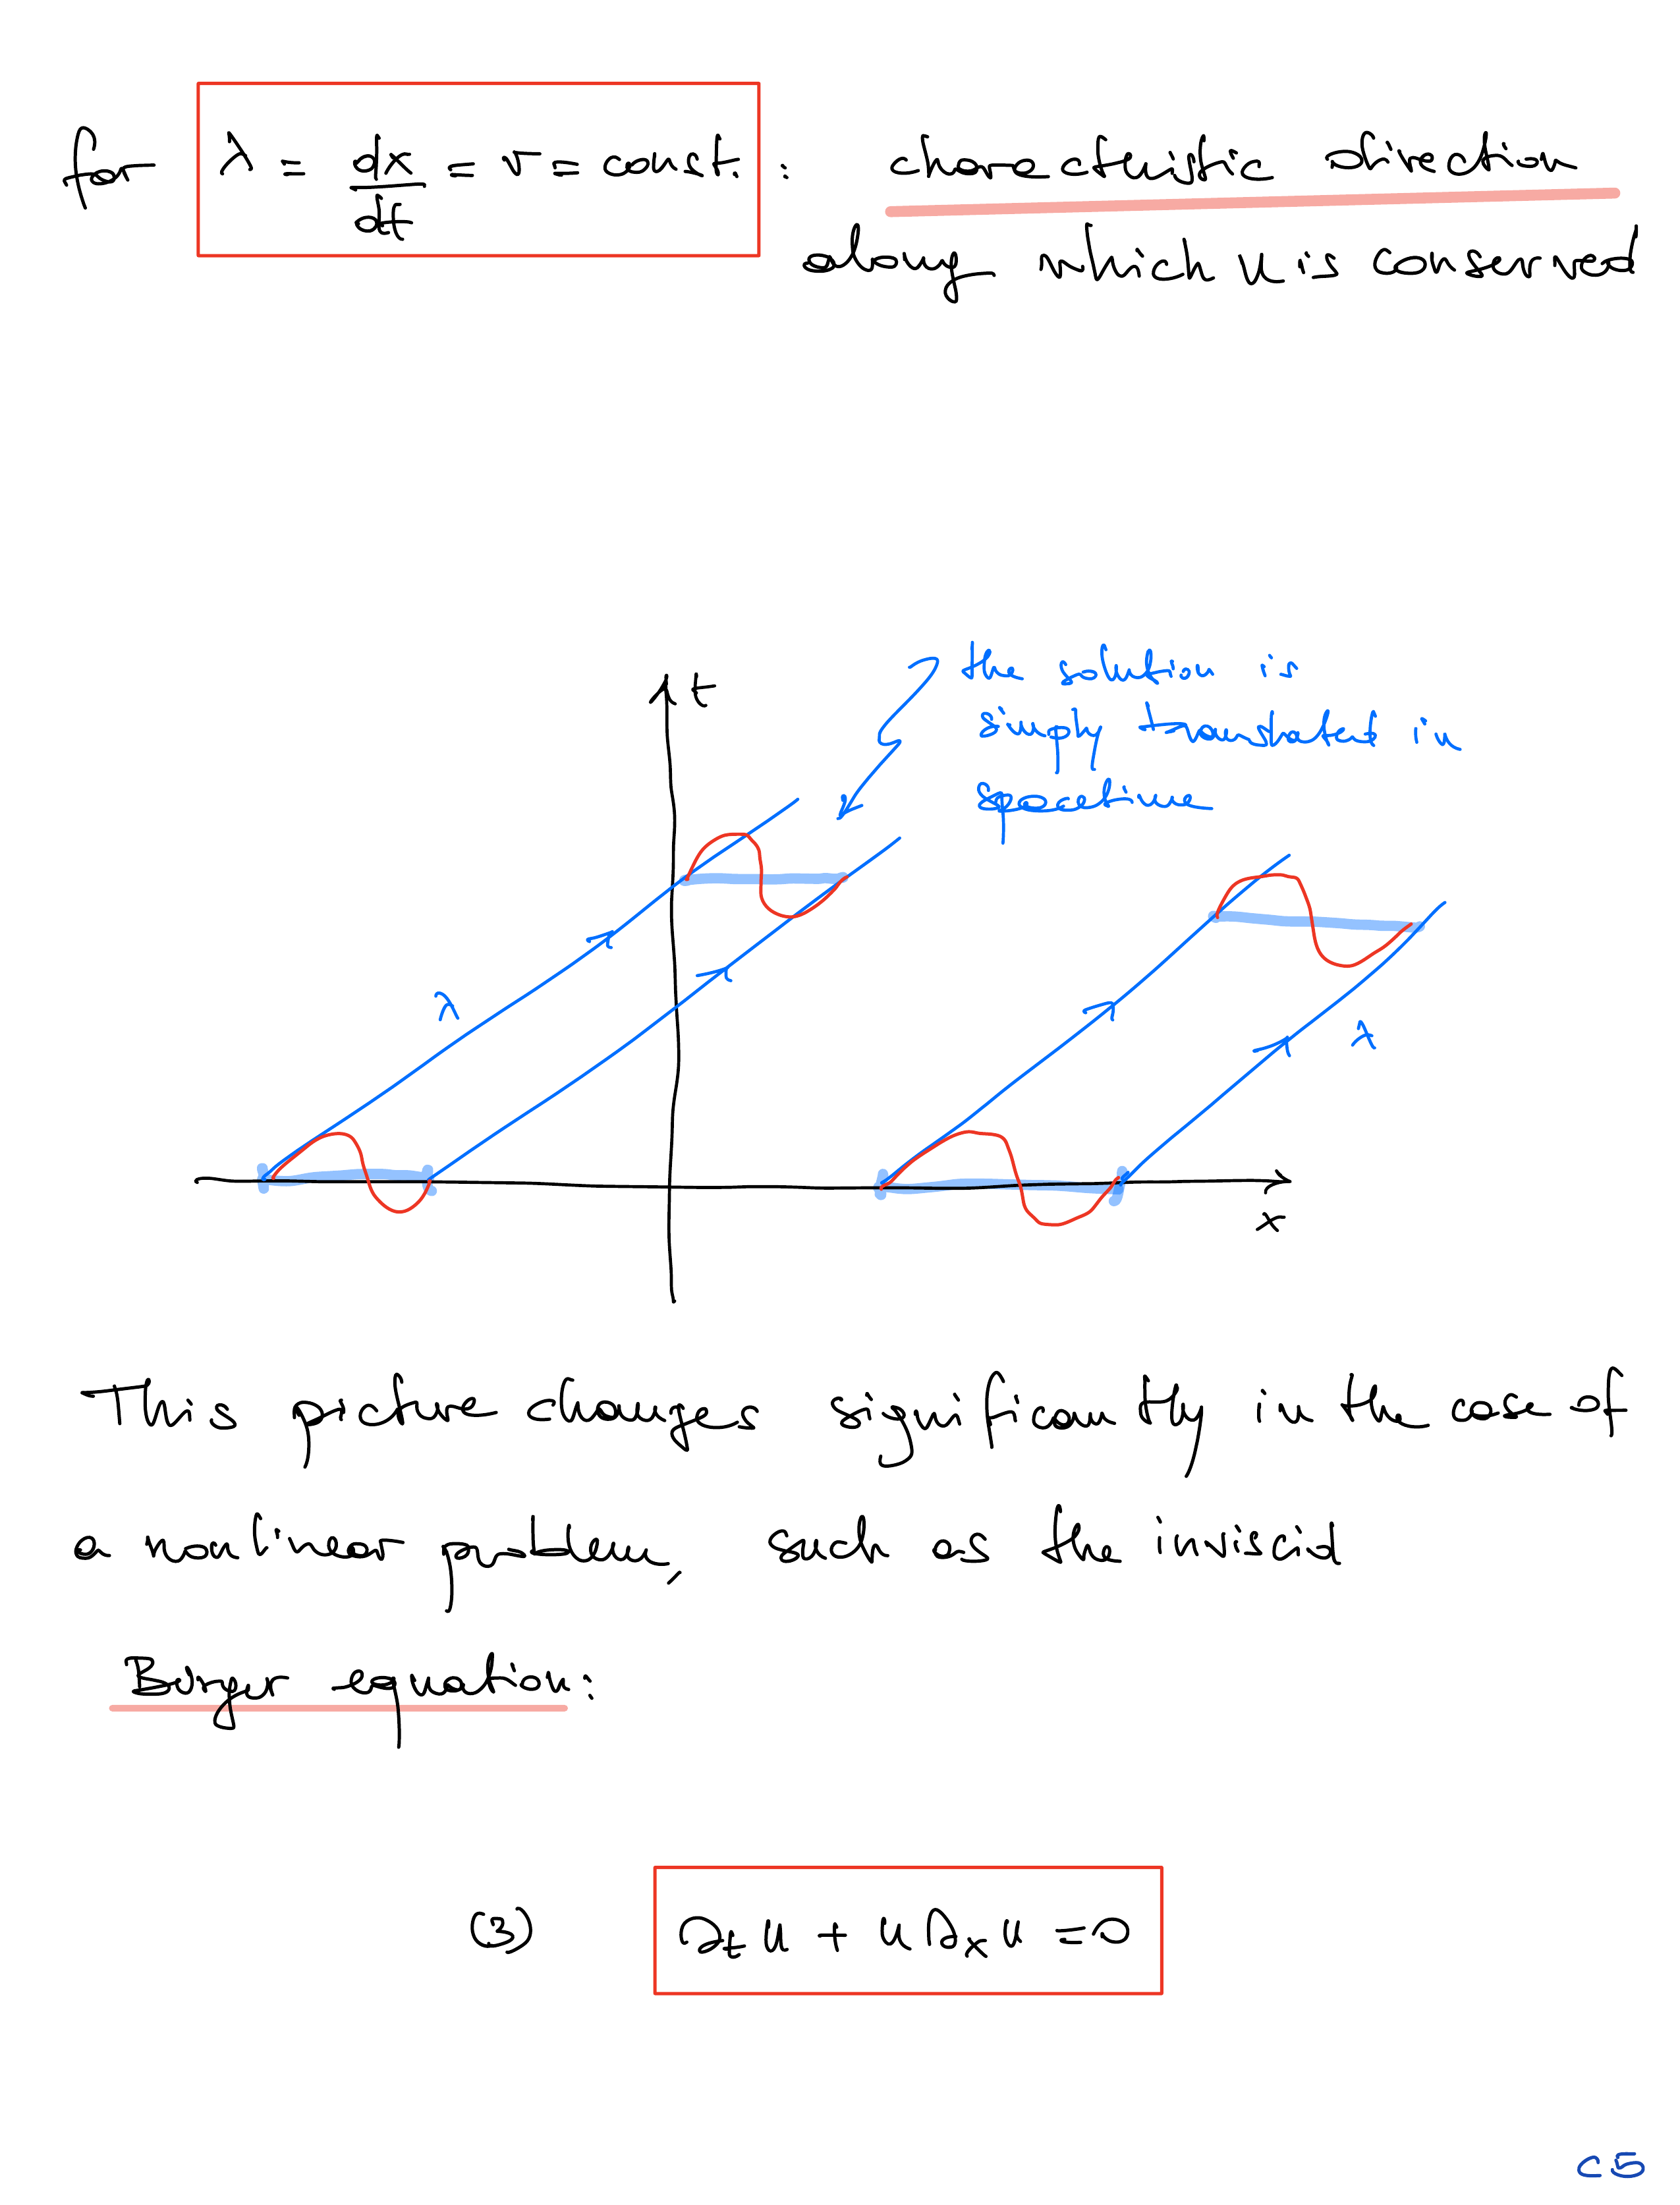 for λ = dx/dt = v = const. : characteristic direction
along which u is conserved
the solution is
simply translated in
spacetime
t
λ
λ
x
This picture changes significantly in the case of
a nonlinear problem, such as the inviscid
Burger equation:
(3) ∂ₜu + u∂ₓu = 0
C5